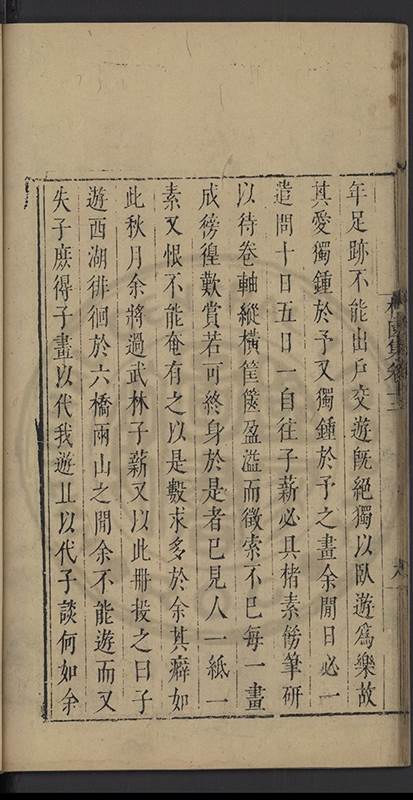 年足跡不能出戶交遊旣絕獨以臥遊爲樂故
其愛獨鍾於予又獨鍾於予之畫余閒日必一
造問十日五日一自往子薪必具楮素傍筆硏
以待卷軸縱橫筐篋盈溢而徵索不已每一畫
成徬徨歎賞若可終身於是者已見人一紙一
素又恨不能奄有之以是數求多於余其癖如
此秋月余將過武林子薪又以此册投之曰子
遊西湖徘徊於六橋兩山之間余不能遊而又
失子庶得子畫以代我遊且以代子談何如余